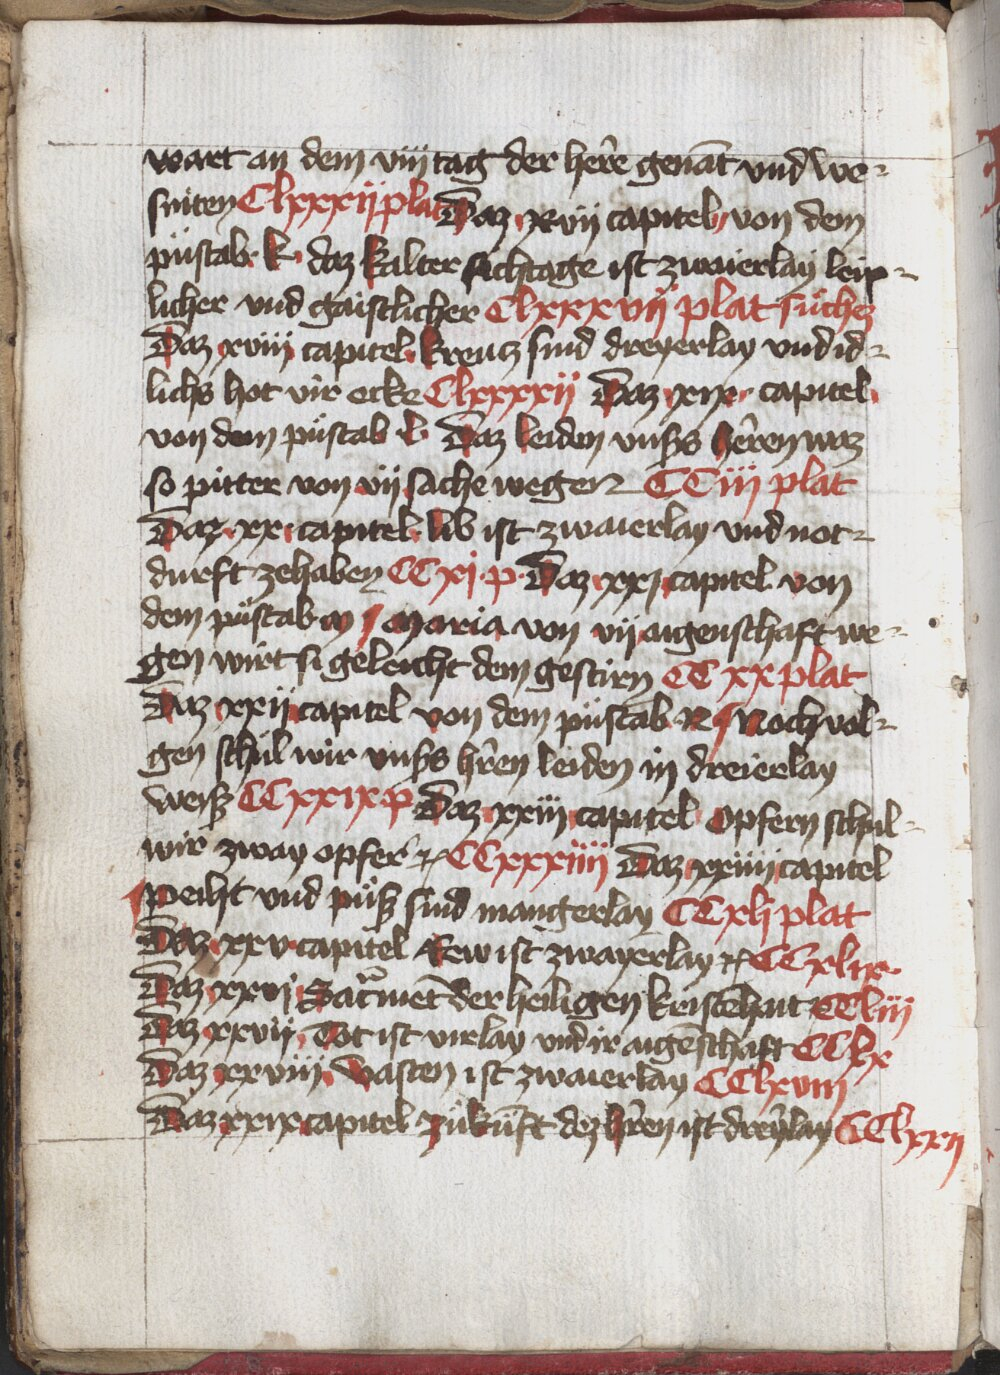 wart an dem viij tag der here genāt vnd we-
sniten Clxxxij plat Daz xvij capitel von dem
pustab k daz kalter sichtage ist zwaierlay leip-
licher vnd gaistlicher Clxxxvij plat suchez
Daz xviij capitel kreutz sind dreyerlay vnd id-
lichs hot vir ecke Clxxxxij Daz xix capitel
von dem pustab l Daz leiden vnsers herren waz
so pitter von vij sache wegen CCiij plat
Daz xx capitel lib ist zwaierlay vnd not-
durft zehaben CCxj p Daz xxj capitel von
dem pustab m Maria von vij aigenschaft we-
gen wirt si geleicht dem gestirn CCxx plat
Daz xxij capitel von dem pustab N Noch vol-
gen schul wir vnsers hren leiden in dreierlay
weiß CCxxix p Daz xxiij capitel Opfern schul-
wir zway opfer CCxxxiiij Daz xxiiij capitel
peiht vnd puß sind mangerlay CCxlj plat
Daz xxv capitel Rew ist zwayerlay CCxlix
Daz xxvj Sacrmēt der heiligen kristēhait CCliij
Daz xxvij Tot ist virlay vnd ir aigēschaft CClx
Daz xxviij vasten ist zwaierlay CClxviij
Daz xxix capitel zukūft dez hren ist dreylay CClxxij